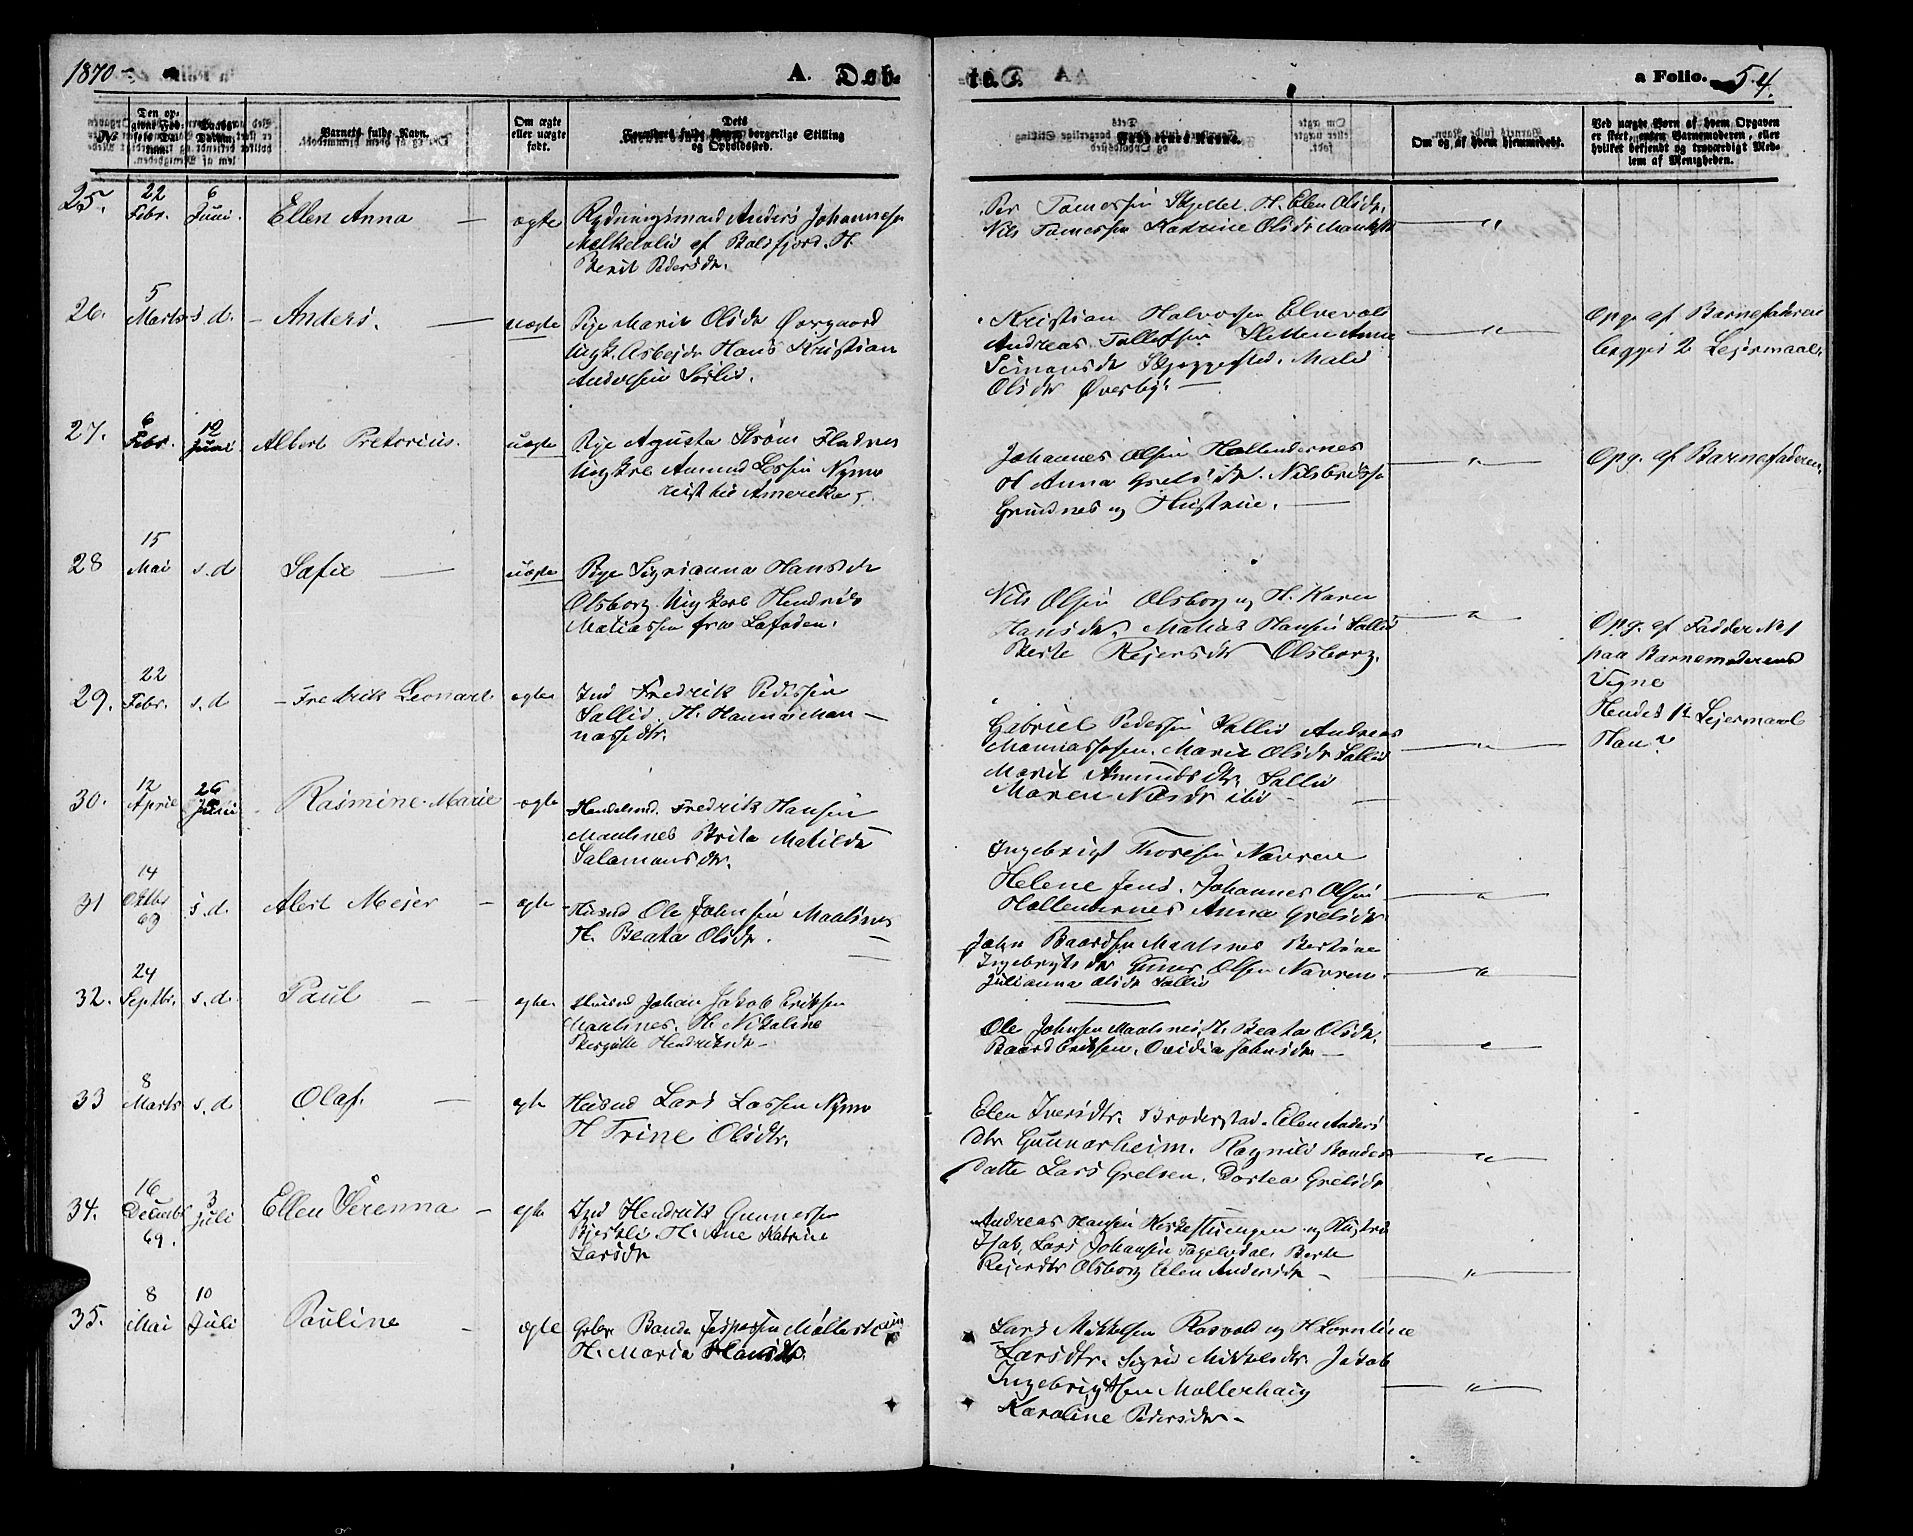 1870
A. Døb-
te.
a Folio. 54.
No.
Barnets fulde Navn.
Om ægte eller uægte født.
Forældres fulde Navn, borgerlige Stilling og Opholdssted.
Faddernes Navne.
Om og af hvem hjemmedøbt.
Ved uægte Børn af hvem Opgaven er skeet, enten Barnemoderen, eller hvilket bekjendt og troværdigt Medlem af Menigheden.
25. 22 Febr. 6 Juni. Ellen Anna — ægte Rydningsmand Anders Johannesen
af Balsfjord. H.
Berit Pedersdr.
Per Tomessen H. Elen Olsdr.
Nils Tomessen Katrine Olsdr
26. 5 Marts s.d. – Anders. — uægte Pige Marit Olsdr Øvergaard
Ungk. Arbejdr Hans Kristian
Andersen Sørlid.
Kristian Halvorsen Elvevold
Andreas Tollefsen Sletten Anne
Simonsdr Skjeggestad. Mali
Olsdr Øverby. —
Opg. af Barnefaderen
begges 2 Lejermaal.
27. 6 Febr. 12 Juni Albert Pretorius. uægte Pige Agusta Strøm Fladnes
Ungkrl Amund Larsen Nymo
rejst til Amerika.
Johannes Olsen Hollendernes
H Anna Grelsdr. Nils
Grundnes og Hustrue. —
Opg. af Barnefaderen
28 15 Mai s.d Sofie — uægte Pige Sigrianna Hansdr
Olsborg. Ungkarl Hendrik
Matiassen fra Lofoden.
Nils Olsen Olsborg og H. Karen
Hansdr. Matias Hansen Sollid
Berte Rejersdr Olsborg.
Opg. af Fadder No 1
paa Barnemoderens
Vegne
Hendes 1te Lejermaal
Han ?
29. 22 Febr. s.d – Fredrik Leonart ægte Ind Fredrik Pedersen
Sollid. H. Hanna Man-
nassedtr.
Gabriel Pedersen Sollid Andreas
Mannassesen. Marit Olsdr Sollid
Marit Amundsdtr. Sollid
Maren Nilsdr ibid –
30. 12 April 26 Juni Rasmine Marie – ægte Handelsmd. Fredrik Hansen
Maalsnes Brita Matilda
Salamonsdtr.
Ingebrigt Thoresen Navren
Helene Jens. Johannes Olsen
Hollendernes Anna Grelsdtr
31 14 Oktbr 69 s.d. Albert Mejer – ægte Husmd Ole Johnsen Maalsnes
H. Beata Olsdr.
John Baardsen Maalsnes
Ingebrigtsdr Olsen Navren.
Julianna Olsdr Sollid
32. 24 Septbr. s.d. Paul – – ægte Husmd Johan Jakob Eriksen
Maalsnes. H. Nikoline
Bergitte Hendriksdr –
Ole Johnsen Maalsnes, H. Beata Olsdr.
Baard Eriksen. Ovidia Johnsdr —
33 8 Marts s.d Olaf. — ægte Husmd Lars Larsen Nymo
H Trine Olsdtr.
Elen Iversdtr. Broderstad. Elen Anders
dtr Gunnarheim. Ragnild
Datte Lars Grelsen. Dortea Grelsdr
34. 16 Decembr 69. 3 Juli Ellen Verenna – ægte Ind Hendrik Gunnersen
Bjerkli. H. Ane Katrine
Larsdr
Andreas Hansen og Hustru
Lars Johansen Fagelidal Berte
Rejersdtr Olsborg Elen Andersdr –
35. 8 Mai 10 Juli Pauline – ægte Gbr. Jespersen Møllerhaug
H. Maria Hansdtr.
Lars Mikkelsen Rosvold og H
Larsdtr. Sigrid Mikkelsdtr. Jakob
Ingebrigtsen Møllerhaug
Karoline Pedersdr –